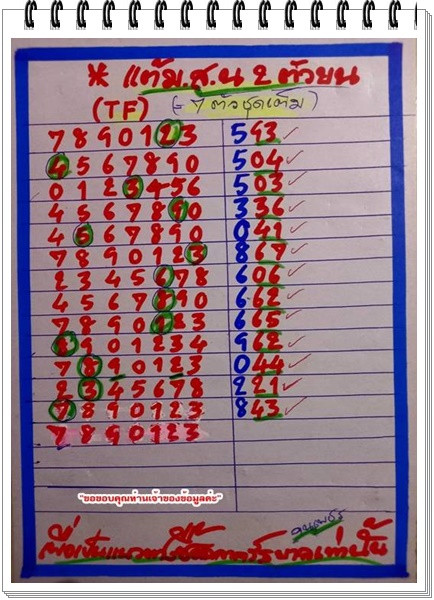 * แต้ม.ส.น 2 ตัวบน
(TF) (= 7 ตัวชุดเต็ม)
7 8 9 0 1 2 3 593 ✓
4 5 6 7 8 9 0 504 ✓
0 1 2 3 4 5 6 503 ✓
4 5 6 7 8 9 0 336 ✓
4 5 6 7 8 9 0 041 ✓
7 8 9 0 1 2 3 867 ✓
2 3 4 5 6 7 8 606 ✓
4 5 6 7 8 9 0 662 ✓
7 8 9 0 1 2 3 665 ✓
8 9 0 1 2 3 4 962 ✓
7 8 9 0 1 2 3 044 ✓
2 3 4 5 6 7 8 221 ✓
7 8 9 0 1 2 3 843 ✓
7 8 9 0 1 2 3
"ขอขอบคุณท่านเจ้าของข้อมูลค่ะ"
เพื่อเป็นแนวทาง เท่านั้น